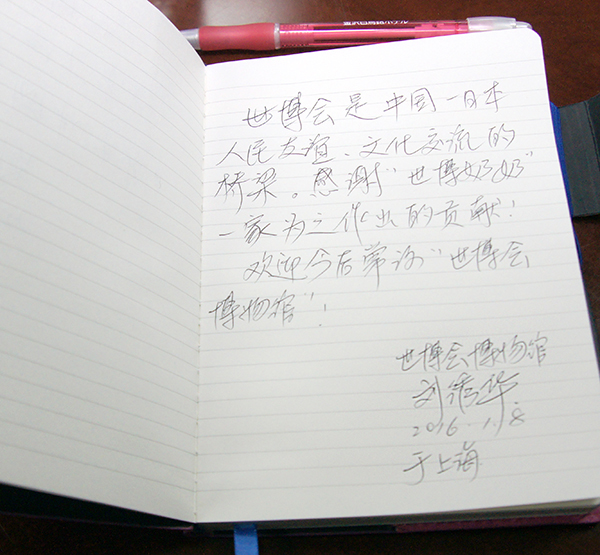 金沢白鳥路ホテル
世博会是中国—日本
人民友谊、文化交流的
桥梁。感谢"世博奶奶"
一家为之作出的贡献!
欢迎今后常访"世博会
博物馆"!
世博会博物馆
刘秀华
2016.1.8
于上海